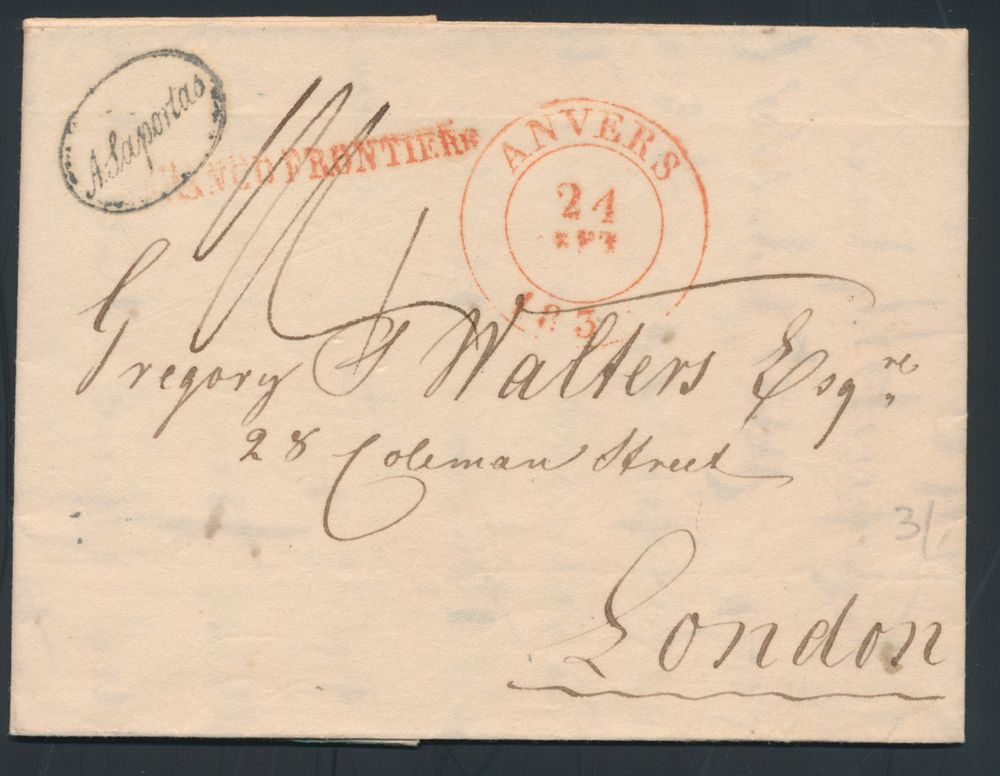 A Saportas
FRONTIERE
ANVERS
24
183
Gregory S Walters Esqre
28 Coleman Street
London
3/